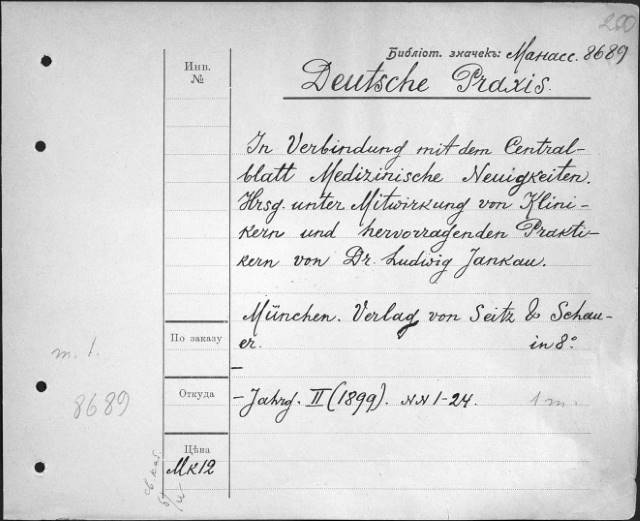 200
Библіот. значекъ: Манасс. 8689
Инв.
№
Deutsche Praxis.
In Verbindung mit dem Central-
blatt Medizinische Neuigkeiten.
Hrsg. unter Mitwirkung von Klini-
kern und hervorragenden Prakti-
kern von Dr. Ludwig Jankau.
München. Verlag von Seitz & Schau-
er. in 8°
По заказу
m. 1.
8689
Откуда
– Jahrg. II (1899). NN 1-24. 1 m.
Цѣна
Mk 12